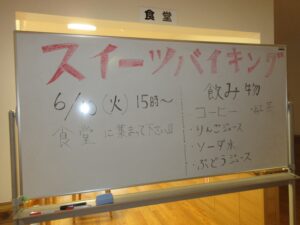 食堂
スイーツバイキング
6/ (火) 15時〜
食堂に集まって下さい!!
飲み物
コーヒー 紅茶
・りんごジュース
・ソーダ水
・ぶどうジュース